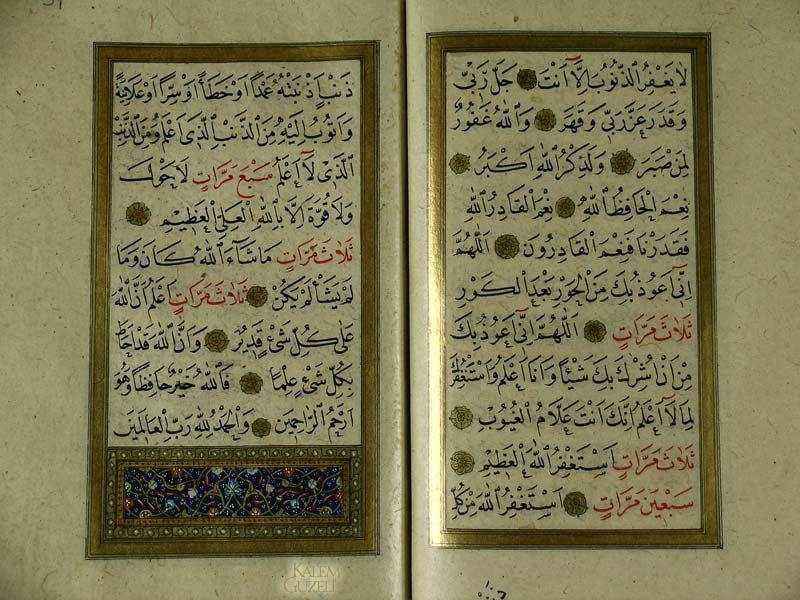 لَا يَغْفِرُ الذُّنُوبَ اِلَّا اَنْتَ جَلَّ رَبِّي
وَقَدَرَ عَزَّ رَبِّي وَقَهَرَ وَاللّٰهُ غَفُورٌ
لِمَنْ صَبَرَ وَلَذِكْرُ اللّٰهِ اَكْبَرُ
نِعْمَ الْحَافِظُ اللّٰهُ نِعْمَ الْقَادِرُ اللّٰهُ
فَقَدَرْنَا فَنِعْمَ الْقَادِرُونَ اَللّٰهُمَّ
اِنِّي اَعُوذُ بِكَ مِنَ الْحَوْرِ بَعْدَ الْكَوْرِ
ثَلَاثَ مَرَّاتٍ اَللّٰهُمَّ اِنِّي اَعُوذُ بِكَ
مِنْ اَنْ اُشْرِكَ بِكَ شَيْئًا وَاَنَا اَعْلَمُ وَاَسْتَغْفِرُكَ
لِمَا لَا اَعْلَمُ اِنَّكَ اَنْتَ عَلَّامُ الْغُيُوبِ
ثَلَاثَ مَرَّاتٍ اَسْتَغْفِرُ اللّٰهَ الْعَظِيمَ
سَبْعِينَ مَرَّاتٍ اَسْتَغْفِرُ اللّٰهَ مِنْ كُلِّ
ذَنْبٍ اَذْنَبْتُهُ عَمْدًا اَوْ خَطَأً اَوْ سِرًّا اَوْ عَلَانِيَةً
وَاَتُوبُ اِلَيْهِ مِنَ الذَّنْبِ الَّذِي اَعْلَمُ وَمِنَ الذَّنْبِ
الَّذِي لَا اَعْلَمُ سَبْعَ مَرَّاتٍ لَا حَوْلَ
وَلَا قُوَّةَ اِلَّا بِاللّٰهِ الْعَلِيِّ الْعَظِيمِ
ثَلَاثَ مَرَّاتٍ مَا شَاءَ اللّٰهُ كَانَ وَمَا
لَمْ يَشَأْ لَمْ يَكُنْ ثَلَاثَ مَرَّاتٍ اَعْلَمُ اَنَّ اللّٰهَ
عَلَى كُلِّ شَيْءٍ قَدِيرٌ وَاَنَّ اللّٰهَ قَدْ اَحَاطَ
بِكُلِّ شَيْءٍ عِلْمًا فَاللّٰهُ خَيْرٌ حَافِظًا وَهُوَ
اَرْحَمُ الرَّاحِمِينَ وَالْحَمْدُ لِلّٰهِ رَبِّ الْعَالَمِينَ
KALEM
GÜZELİ